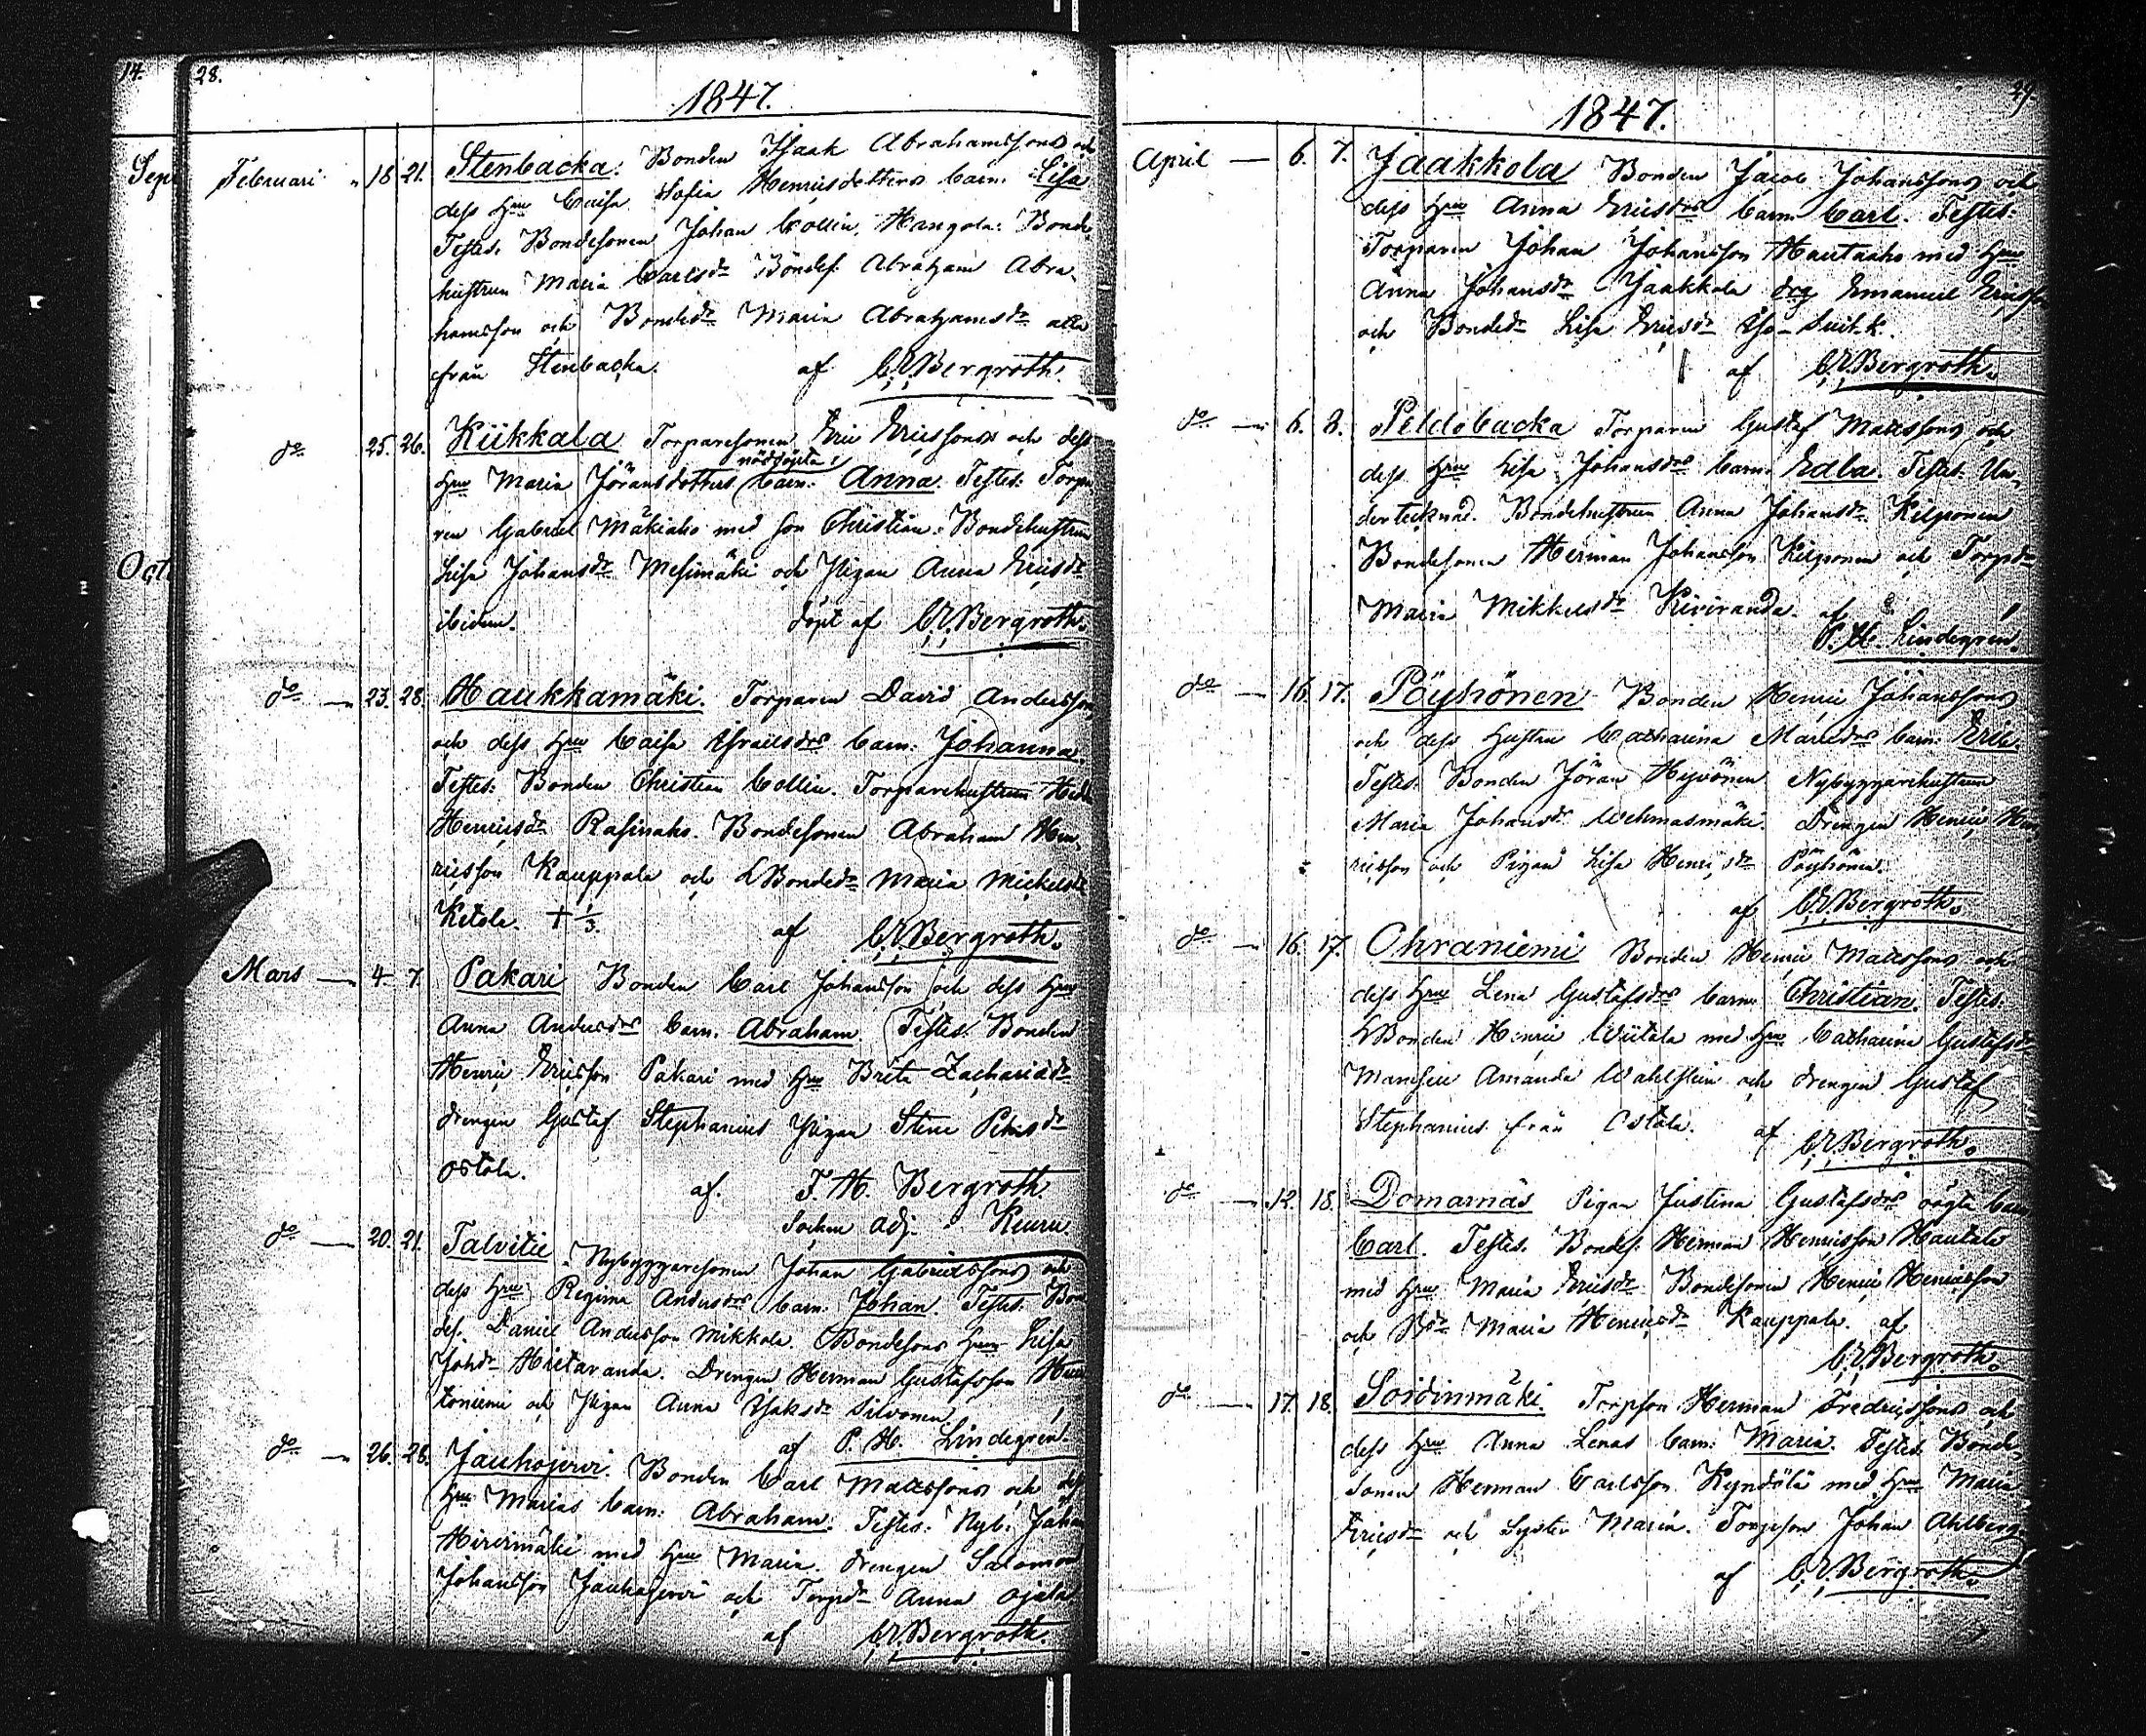 14.
Sept
Oct
28.
1847.
Februari " 18 21. Stenbacka. Bonden Isaak Abrahamssons och
dess Hru Caisa Sofia Henriksdotters barn: Lisa
Testes. Bondesonen Johan Collin, Mangola: Bonde
hustrun Maria Carlsdr Bondes. Abraham Abra,
hamsson och Bondedr Maria Abrahamsdr alla
från Stenbacka. af C.E. Bergroth.
do 25. 26. Kükkala Torparesonen Eric Ericssons och dess
nöddöpta
Hru Maria Jöransdotters barn: Anna. Testes: Torpa
ren Gabriel Mäkiaho med son Christian: Bondehustrun
Lisa Johansdr Mesimäki och Pigan Anna Ericsdr
ibidem. döpt af C.E. Bergroth.
do 23. 28. Haukkamäki. Torparen David Andersson,
och dess Hru Caisa Israelsdrs barn: Johanna.
Testes: Bonden Christian Collin. Torparehustrun
Henricsdr Rasinaho. Bondesonen Abraham Hen,
ricsson Kauppala och LBondedr Maria Mickelsdr
Ketola. + 1/3. af C.E. Bergroth.
Mars 4. 7. Pakari Bonden Carl Johansson och dess Hru
Anna Andersdrs barn. Abraham. Testes. Bonden
Henric Ericsson Pakari med Hru Brita Zachariædr
drengen Gustaf Stephanius Pigan Stina
Ostola. af. F. H. Bergroth
Socken Adj. i Keuru.
do 20. 21. Talvitie. Nybyggaresonen Johan Gabrielssons och
dess Hru Regina Andersdrs barn: Johan. Testes. Bon
des. Daniel Andersson Mikkola. Bondesons Hru Lisa
Johdr Hietaranda. Drengen Herman Gustafsson
toniemi och Pigan Anna Isaksdr Silvonen.
af P. H. Lindegren.
do 26. 28. Jauhojervi. Bonden Carl Mattssons och dess
Hru Marias barn: Abraham. Testes: Nyb: Johan
Hirvimäki med Hru Maria. drengen Salomon
Johansson Jauhojervi och Torpdr Anna Ojala
af C.E. Bergroth.
29.
1847.
April 6. 7. Jaakkola Bonden Jacob Johanssons och
dess Hru Anna Ericsdrs barn Carl. Testes:
Torparen Johan Johansson Hautaaho med Hru
Anna Johansdr Jaakkola drg Emanuel Ericsson
och Bondedr Lisa Ericsdr
af C.E. Bergroth.
do 6. 8. Peldobacka Torparen Gustaf Mattssons och
dess Hru Lisa Johansdrs barn: Edla. Testes. Un,
dertecknad. Bondehustrun Anna Johansdr. Kilponen
Bondesonen Herman Johansson Kilponen och Torpdr
Maria Mikkelsdr Kiviranda. af
P. H. Lindegren.
do 16. 17. Pöyhönen Bonden Henric Johanssons
och dess Hustru Catharina Mariædrs barn: Eric.
Testes. Bonden Jöran Hyvönen Nybyggarehustrun
Maria Johansdr Uehmasmäki. Drengen Henric Hen
ricsson och Pigan Lisa Henricsdr Pöyhönen.
af C.E. Bergroth.
do 16. 17. Ohraniemi Bonden Henric Mattssons och
dess Hru Lena Gustafsdrs barn Christian. Testes.
LBonden Henric Wiitala med Hru Catharina Gustafsdr
Mamsell Amanda Wahlstein och drengen Gustaf
Stephanius från Ostola. af C.E. Bergroth.
do 12. 18. Domarnäs Pigan Justina Gustafsdrs oägta barn
Carl. Testes. Bondes. Herman Henricsson Hautala
med Hru Maria Ericsdr. Bondesonen Henric Henricsson
och Bdr Maria Henricsdr Kauppala. af
C.E. Bergroth.
do 17. 18. Soidinmäki. Torpson Herman Fredricssons och
dess Hru Anna Lenas barn: Maria. Testes. Bonde,
sonen Herman Carlsson Kyndölä med Hru Maria
Ericsdr och Syster Maria. Torpson Johan Ahlberg
af C.E. Bergroth.